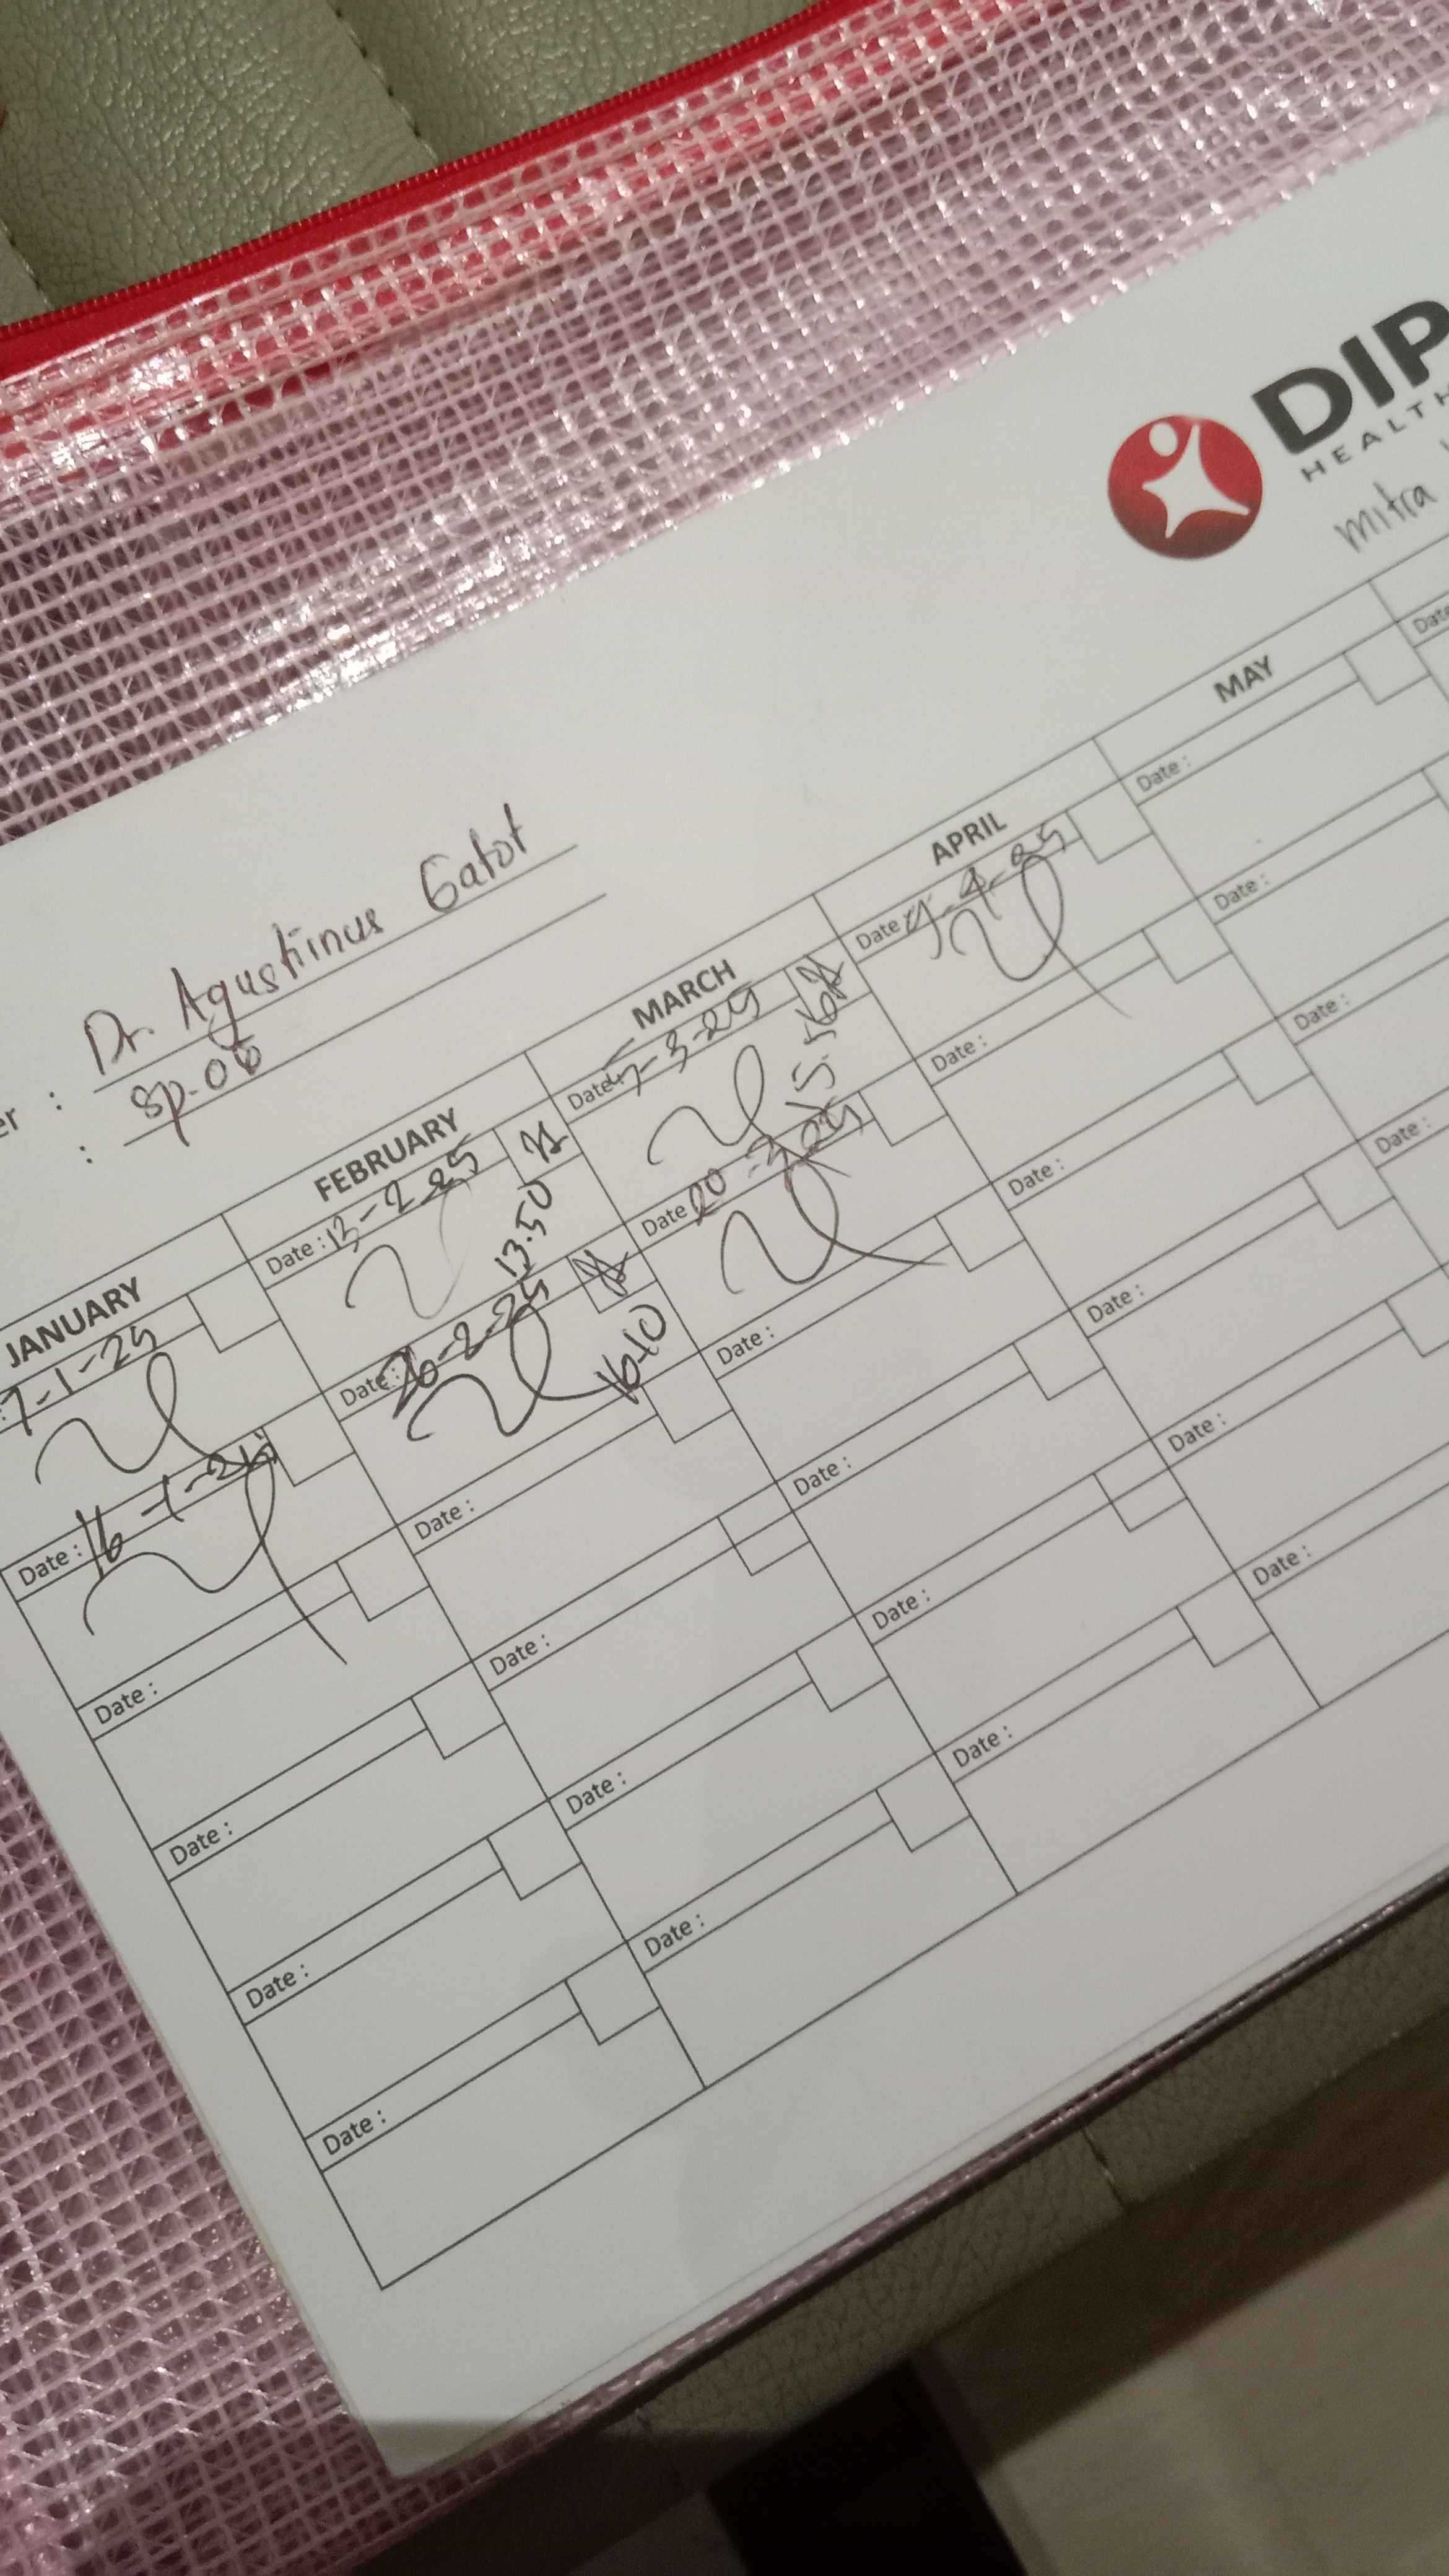 DIP
HEALTH
mitra
er : Dr. Agustinus Gatot
: Sp.OG
JANUARY FEBRUARY MARCH APRIL MAY
: 7-1-25
Date : 13-2-25
13.50
Date : 4-3-25
15.56
Date
Date :
Date
Date : 16-1-25
Date : 26-2-25
16.10
Date 20-3-25
Date :
Date :
Date :
Date :
Date :
Date :
Date :
Date :
Date :
Date :
Date :
Date :
Date :
Date :
Date :
Date :
Date :
Date :
Date :
Date :
Date :